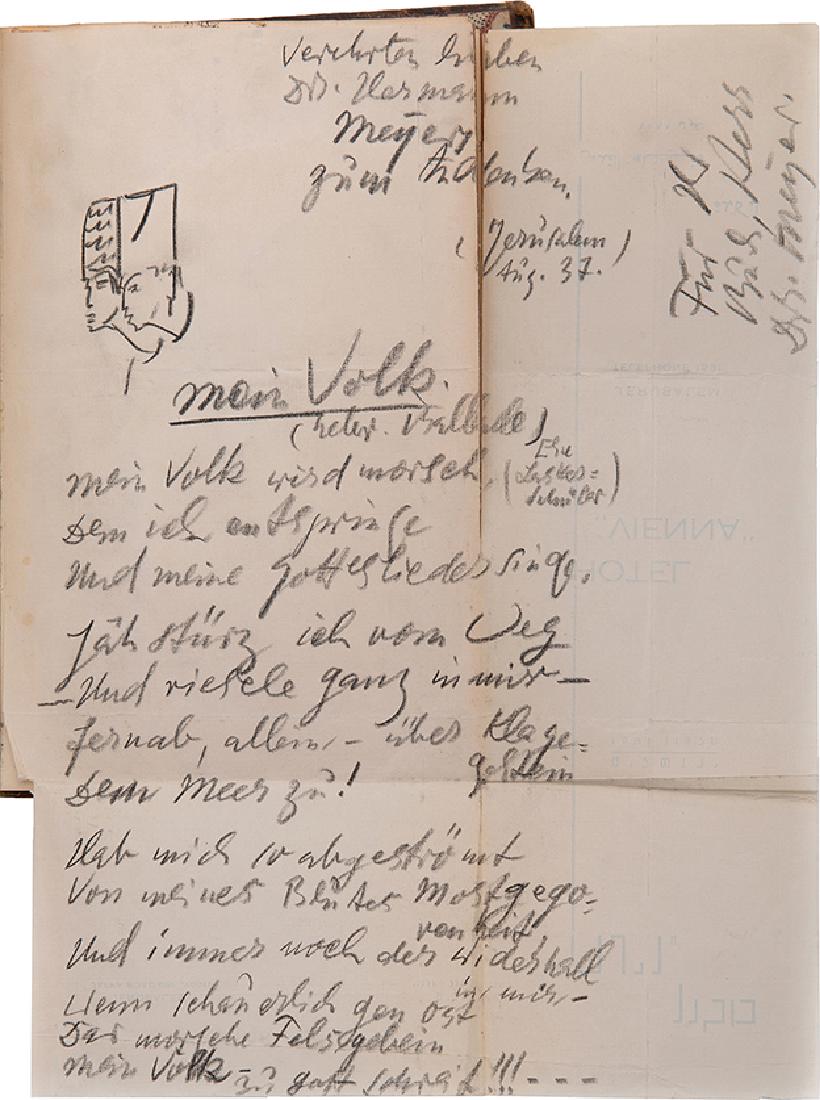 Verehrten lieben
Dr. Hermann
Meyer
zum Andenken.
(Jerusalem
Aug. 37.)
Für
Dr. Meyer.
Mein Volk.
(hebr. Ballade)
(Else
Lasker-
Schüler)
Mein Volk wird morsch,
Dem ich entspringe
Und meine Gotteslieder singe.
Jäh stürz ich vom Weg
– Und riesele ganz in mir –
Fernab, allein, – über Klage-
gestein
Dem Meer zu!
Hab mich so abgeströmt
Von meines Blutes Mostgego-
renheit
Und immer noch der Widerhall
in mir –
Wenn schauerlich gen Ost
Das morsche Felsgebein
Mein Volk – zu Gott schreit!!! - - -
TELEPHONE
JERUSALEM
"VIENNA"
HOTEL